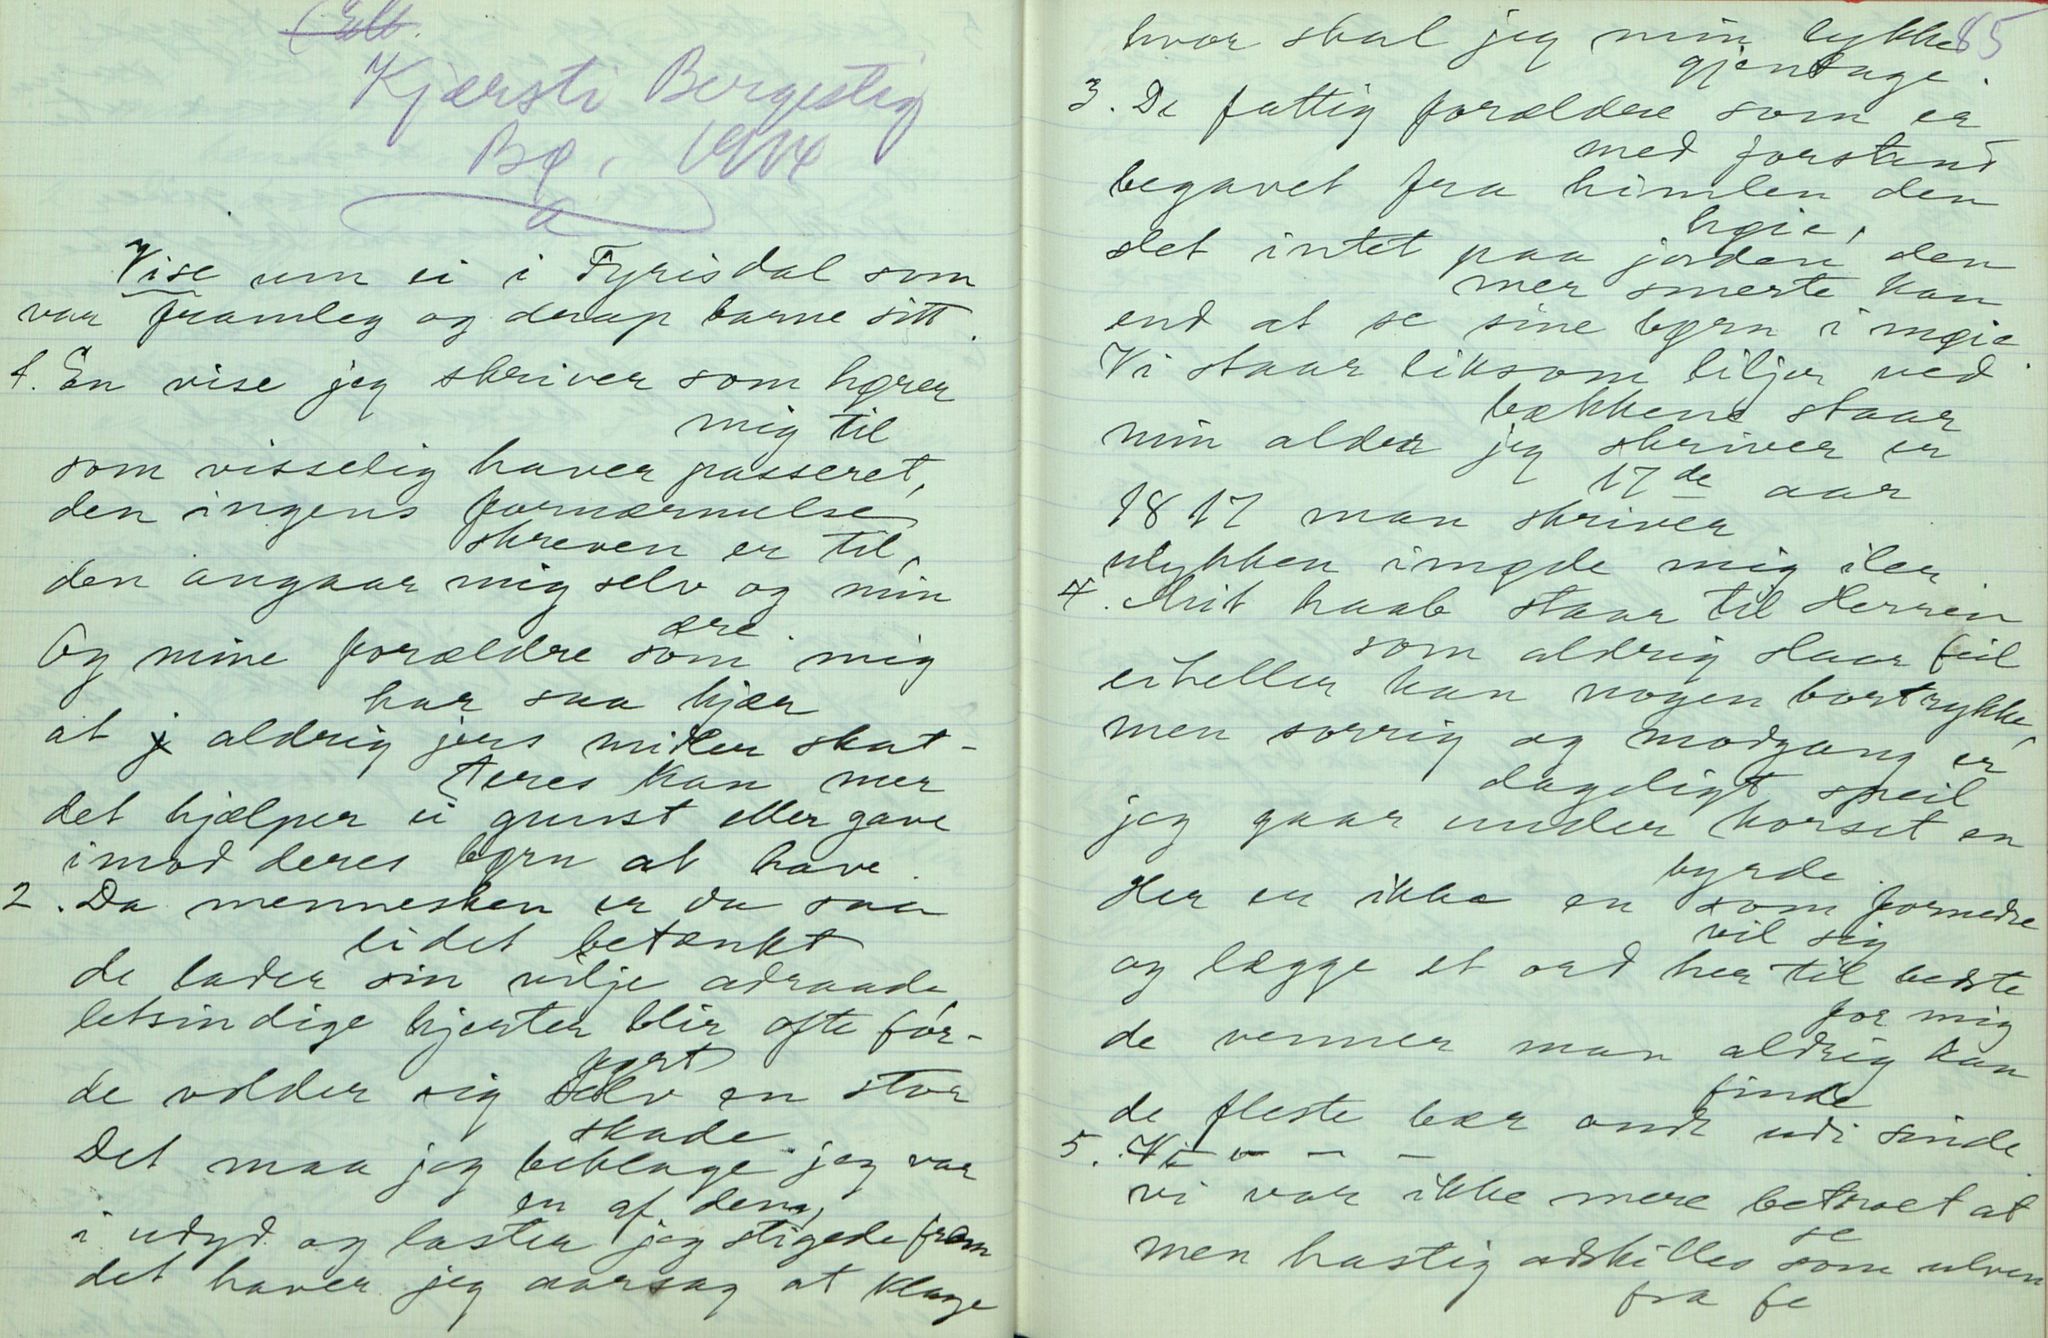 Kjærsti Bergestig
Bø, 1914
a
Vise um ei i Fyrisdal som
var framleg og drap barne sitt.
1. En vise jeg skriver som hører
mig til
som visselig haver passeret,
den ingens fornærmelse
skreven er til,
den angaar mig selv og min
ære.
Og mine forældre som mig
har saa kjær
at aldrig jers midler skat-
teres kan mer
det hjælper ei gunst eller gave
imod deres børn at have.
2. Da mennesken er da saa
lidet betænkt
de lader sin vilje adraade
letsindige hjerter blir ofte for-
kort
de volder sig selv en stor
skade.
Det maa jeg beklage jeg var
en af dem,
i udyd og laster jeg stigede frem
det haver jeg aarsag at klage
85
hvor skal jeg min lykke
gjentage.
3. De fattig forældre som er
med forstand
begavet fra himlen den
høie,
slet intet paa jorden den
mer smerte kan
end at se sine børn i møie
Vi staar liksom liljer ved
bækkene staar
min alder jeg skriver er
17de aar
1817 man skriver
ulykken imøde mig iler.
4. Mit haab staar til Herren
som aldrig slaar feil
eiheller kan nogen bortrykke,
men sorrig og modgang er
dagligt speil
jeg gaar under korset en
byrde.
Her er ikke en som fornedre
vil sig
og lægge et ord her til bedste
for mig
de venner man aldrig kan
finde
de fleste bær ondt udi sinde.
5. Vi - - - -
vi var ikke mere betroet at
se
men hastig adskilles som ulven
fra fe